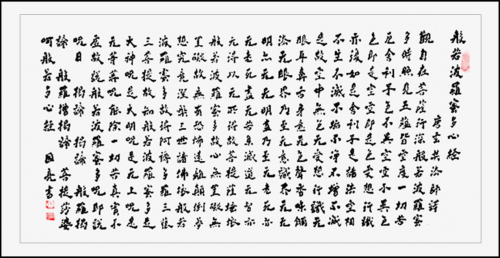 般若波羅蜜多心經
唐玄奘法師譯
觀自在菩薩行深般若波羅蜜
多時照見五蘊皆空度一切苦
厄舍利子色不異空空不異色
色即是空空即是色受想行識
亦復如是舍利子是諸法空相
不生不滅不垢不淨不增不減
是故空中無色无受想行識无
眼耳鼻舌身意无色聲香味觸
法无眼界乃至无意識界无无
明亦无无明盡乃至无老死亦
无老死盡无苦集滅道无智亦
无得以无所得故菩提薩埵依
般若波羅蜜多故心无罣礙无
罣礙故無有恐怖遠離顛倒夢
想究竟涅槃三世諸佛依般若
波羅蜜多故得阿耨多羅三藐
三菩提故知般若波羅蜜多是
大神咒是大明咒是无上咒是
无等等咒能除一切苦真實不
虛故說般若波羅蜜多咒即說
咒曰 揭諦揭諦 般羅揭
諦 般羅僧揭諦 菩提薩婆
訶般若多心經 亮書